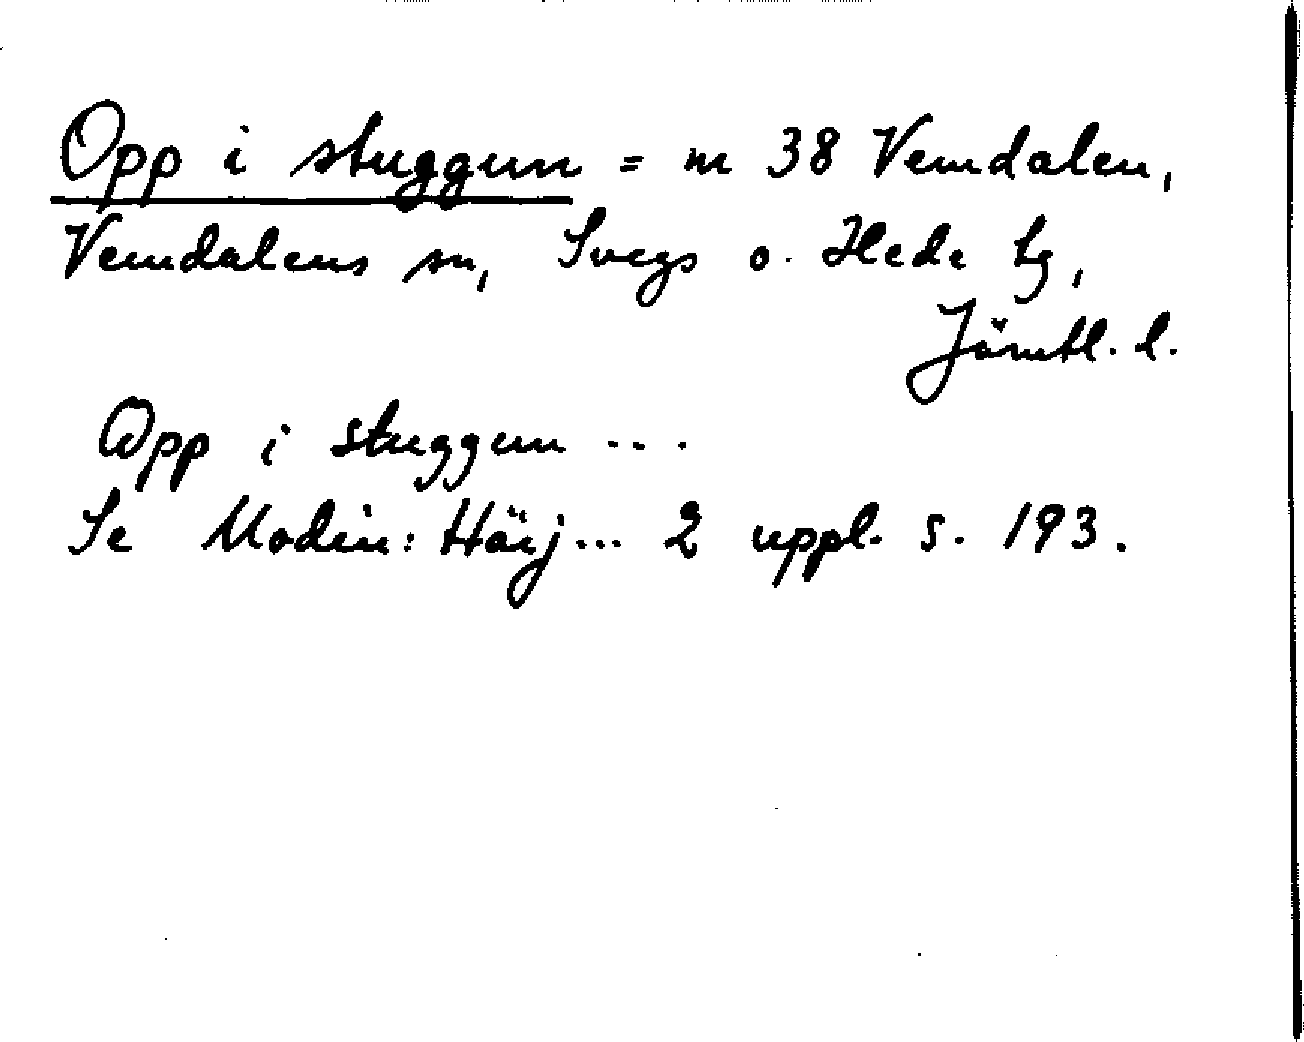 Opp i stuggun = nr 38 Vemdalen,
Vemdalens sn, Svegs o. Hede tg,
Jämtl. l.
Opp i stuggun ...
Se Modin: Härj... 2 uppl. s. 193.